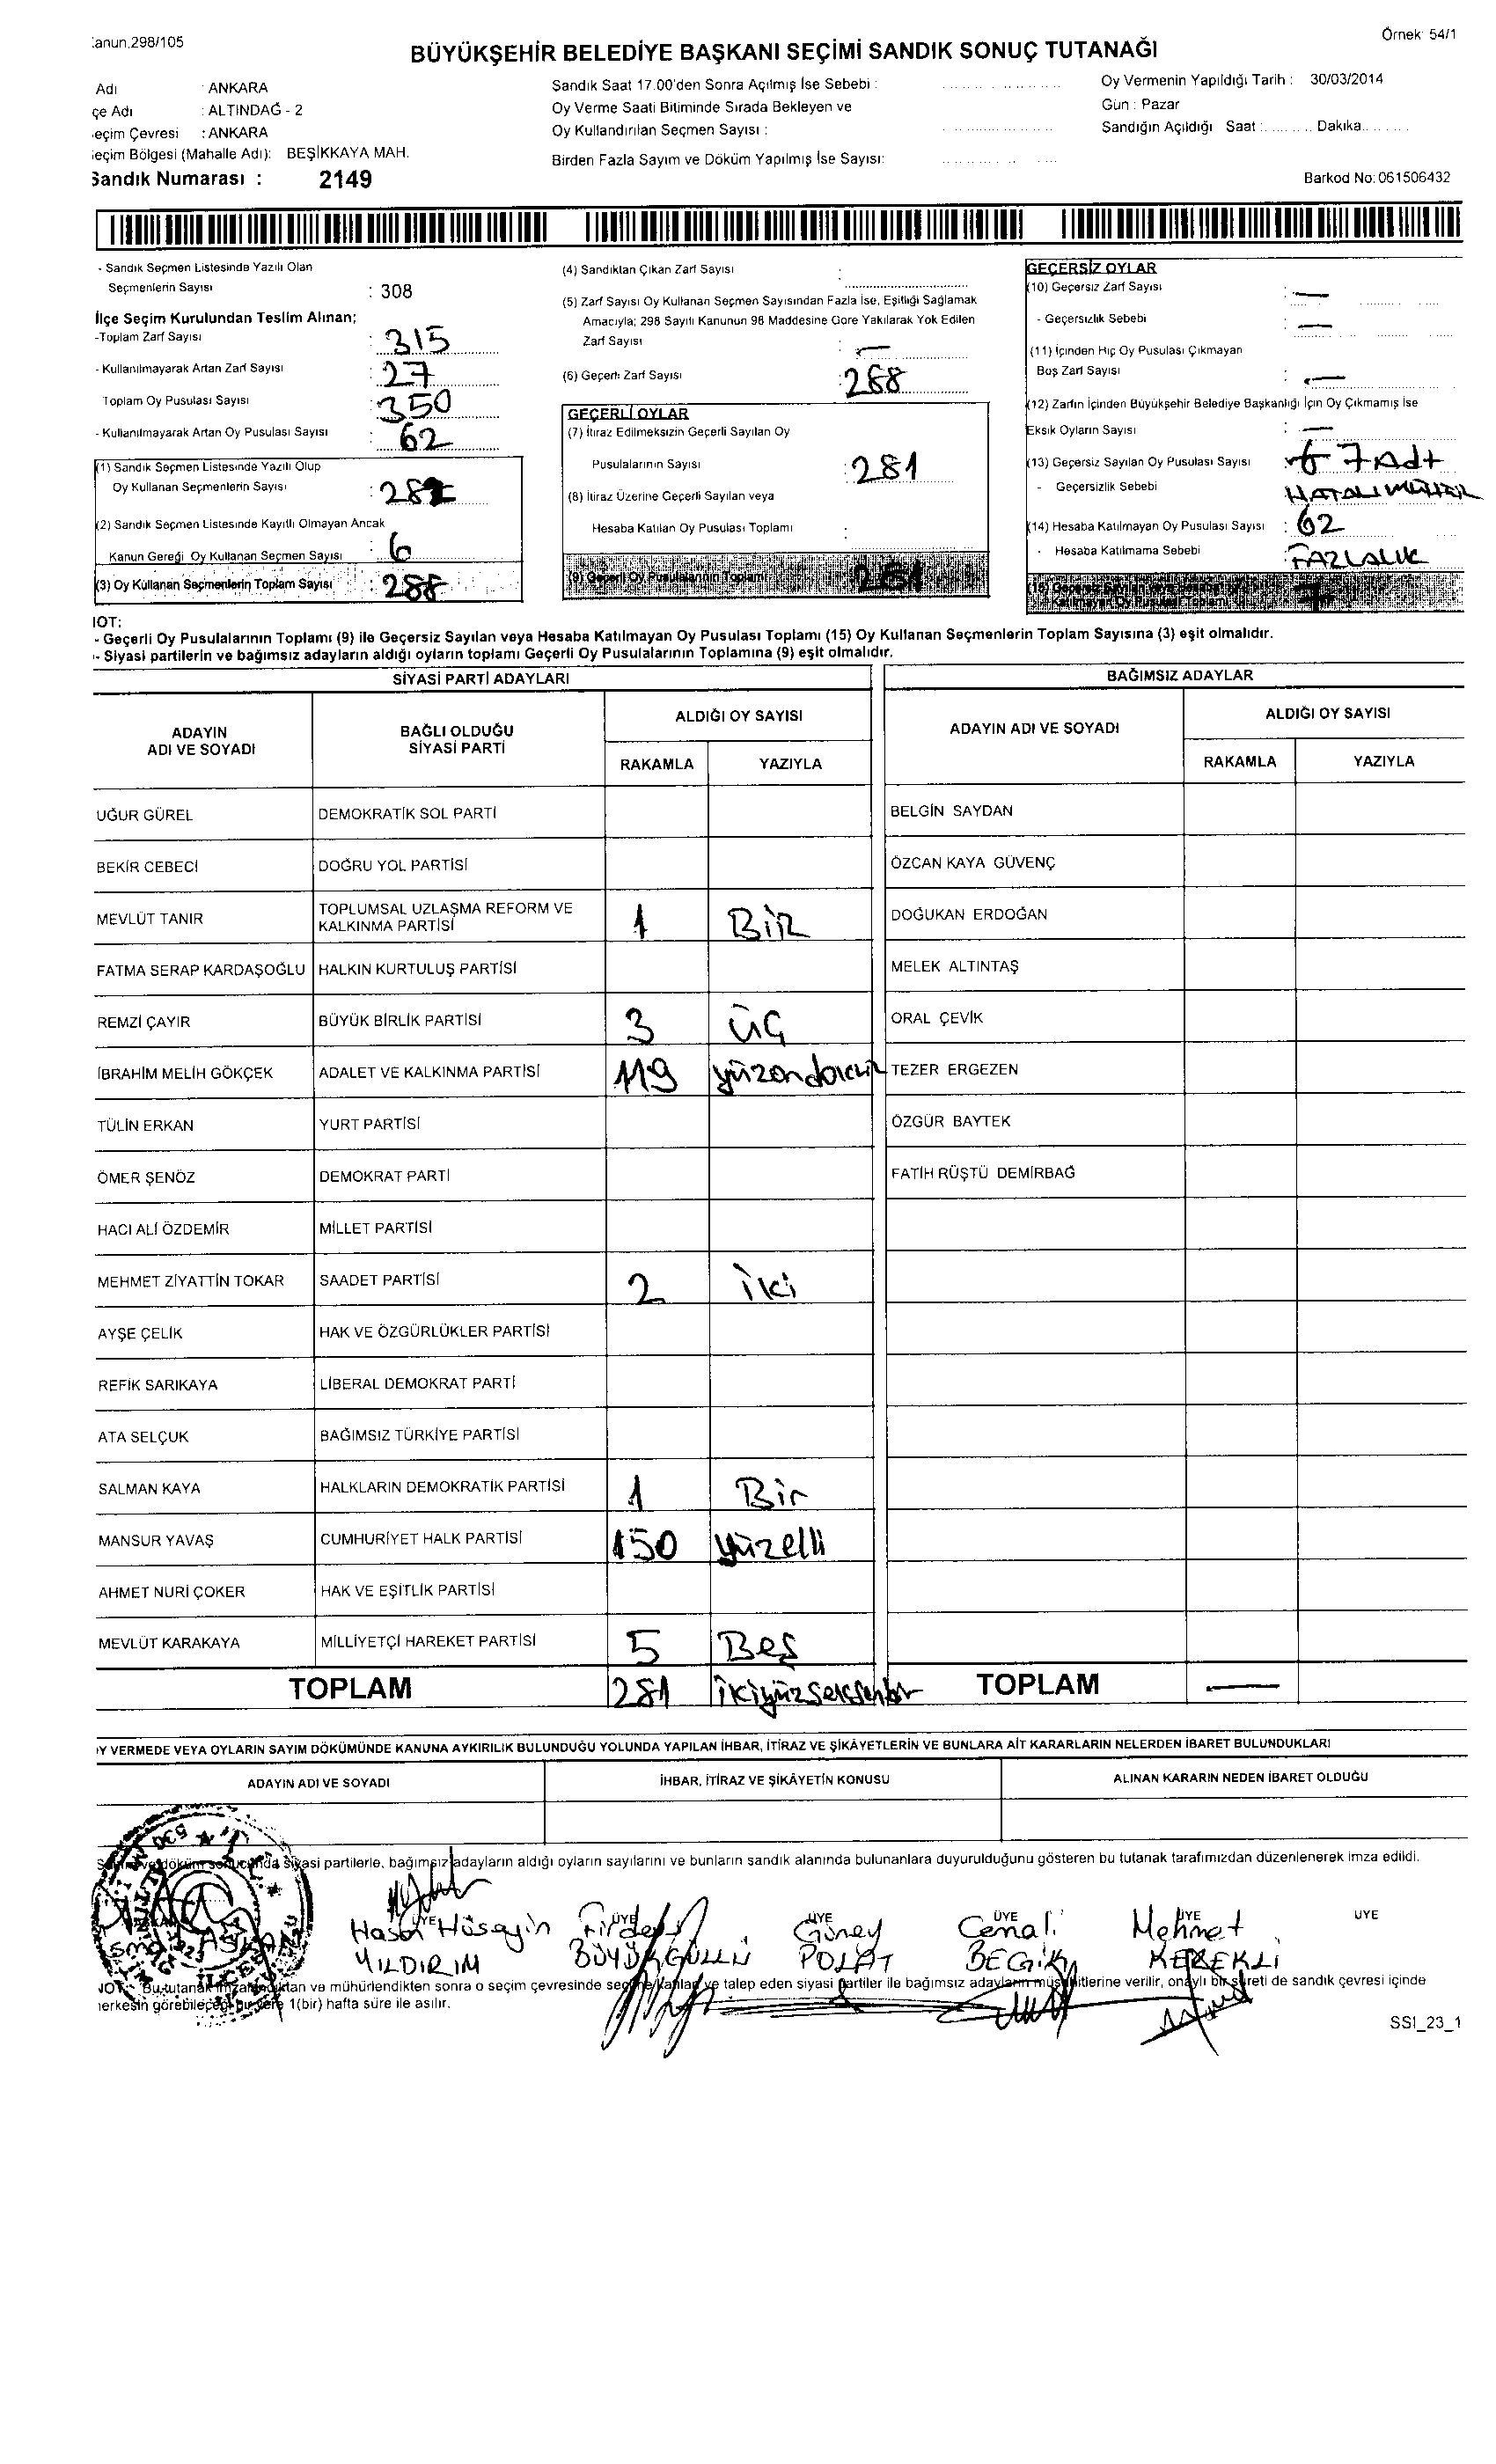 :anun.298/105
Örnek: 54/1
BÜYÜKŞEHİR BELEDİYE BAŞKANI SEÇİMİ SANDIK SONUÇ TUTANAĞI
Adı : ANKARA
çe Adı : ALTINDAĞ - 2
eçim Çevresi : ANKARA
eçim Bölgesi (Mahalle Adı): BEŞİKKAYA MAH.
Sandık Numarası : 2149
Sandık Saat 17.00'den Sonra Açılmış İse Sebebi :
Oy Verme Saati Bitiminde Sırada Bekleyen ve
Oy Kullandırılan Seçmen Sayısı :
Birden Fazla Sayım ve Döküm Yapılmış İse Sayısı:
Oy Vermenin Yapıldığı Tarih : 30/03/2014
Gün : Pazar
Sandığın Açıldığı Saat :.......... Dakika..........
Barkod No: 061506432
- Sandık Seçmen Listesinde Yazılı Olan
Seçmenlerin Sayısı : 308
İlçe Seçim Kurulundan Teslim Alınan;
-Toplam Zarf Sayısı : 315
- Kullanılmayarak Artan Zarf Sayısı : 27
Toplam Oy Pusulası Sayısı : 350
- Kullanılmayarak Artan Oy Pusulası Sayısı : 62
(1) Sandık Seçmen Listesinde Yazılı Olup
Oy Kullanan Seçmenlerin Sayısı :
(2) Sandık Seçmen Listesinde Kayıtlı Olmayan Ancak
Kanun Gereği Oy Kullanan Seçmen Sayısı : 6
(3) Oy Kullanan Seçmenlerin Toplam Sayısı : 288
(4) Sandıktan Çıkan Zarf Sayısı :
(5) Zarf Sayısı Oy Kullanan Seçmen Sayısından Fazla İse, Eşitliği Sağlamak
Amacıyla; 298 Sayılı Kanunun 98 Maddesine Göre Yakılarak Yok Edilen
Zarf Sayısı : —
(6) Geçerli Zarf Sayısı : 288
GEÇERLİ OYLAR
(7) İtiraz Edilmeksizin Geçerli Sayılan Oy
Pusulalarının Sayısı : 281
(8) İtiraz Üzerine Geçerli Sayılan veya
Hesaba Katılan Oy Pusulası Toplamı :
(9) Geçerli Oy Pusulalarının Toplamı 281
GEÇERSİZ OYLAR
(10) Geçersiz Zarf Sayısı : —
- Geçersizlik Sebebi : —
(11) İçinden Hiç Oy Pusulası Çıkmayan
Boş Zarf Sayısı : —
(12) Zarfın İçinden Büyükşehir Belediye Başkanlığı İçin Oy Çıkmamış İse
Eksik Oyların Sayısı : —
(13) Geçersiz Sayılan Oy Pusulası Sayısı : 7 Adt
- Geçersizlik Sebebi HATALI MÜHÜR
(14) Hesaba Katılmayan Oy Pusulası Sayısı : 62
- Hesaba Katılmama Sebebi : FAZLALIK
7
NOT:
- Geçerli Oy Pusulalarının Toplamı (9) ile Geçersiz Sayılan veya Hesaba Katılmayan Oy Pusulası Toplamı (15) Oy Kullanan Seçmenlerin Toplam Sayısına (3) eşit olmalıdır.
- Siyasi partilerin ve bağımsız adayların aldığı oyların toplamı Geçerli Oy Pusulalarının Toplamına (9) eşit olmalıdır.
SİYASİ PARTİ ADAYLARI
ADAYIN ADI VE SOYADI
BAĞLI OLDUĞU SİYASİ PARTİ
ALDIĞI OY SAYISI
RAKAMLA YAZIYLA
UĞUR GÜREL DEMOKRATİK SOL PARTİ
BEKİR CEBECİ DOĞRU YOL PARTİSİ
MEVLÜT TANIR TOPLUMSAL UZLAŞMA REFORM VE KALKINMA PARTİSİ 1 BİR
FATMA SERAP KARDAŞOĞLU HALKIN KURTULUŞ PARTİSİ
REMZİ ÇAYIR BÜYÜK BİRLİK PARTİSİ 3 ÜÇ
İBRAHİM MELİH GÖKÇEK ADALET VE KALKINMA PARTİSİ 119 yüzondokuz
TÜLİN ERKAN YURT PARTİSİ
ÖMER ŞENÖZ DEMOKRAT PARTİ
HACI ALİ ÖZDEMİR MİLLET PARTİSİ
MEHMET ZİYATTİN TOKAR SAADET PARTİSİ 2 iki
AYŞE ÇELİK HAK VE ÖZGÜRLÜKLER PARTİSİ
REFİK SARIKAYA LİBERAL DEMOKRAT PARTİ
ATA SELÇUK BAĞIMSIZ TÜRKİYE PARTİSİ
SALMAN KAYA HALKLARIN DEMOKRATİK PARTİSİ 1 Bir
MANSUR YAVAŞ CUMHURİYET HALK PARTİSİ 150 yüzelli
AHMET NURİ ÇOKER HAK VE EŞİTLİK PARTİSİ
MEVLÜT KARAKAYA MİLLİYETÇİ HAREKET PARTİSİ 5 Beş
TOPLAM 281 ikiyüzseksenbir
BAĞIMSIZ ADAYLAR
ADAYIN ADI VE SOYADI
ALDIĞI OY SAYISI
RAKAMLA YAZIYLA
BELGİN SAYDAN
ÖZCAN KAYA GÜVENÇ
DOĞUKAN ERDOĞAN
MELEK ALTINTAŞ
ORAL ÇEVİK
TEZER ERGEZEN
ÖZGÜR BAYTEK
FATİH RÜŞTÜ DEMİRBAĞ
TOPLAM —
Y VERMEDE VEYA OYLARIN SAYIM DÖKÜMÜNDE KANUNA AYKIRILIK BULUNDUĞU YOLUNDA YAPILAN İHBAR, İTİRAZ VE ŞİKÂYETLERİN VE BUNLARA AİT KARARLARIN NELERDEN İBARET BULUNDUKLARI
ADAYIN ADI VE SOYADI İHBAR, İTİRAZ VE ŞİKÂYETİN KONUSU ALINAN KARARIN NEDEN İBARET OLDUĞU
Sayım ve döküm sonucunda siyasi partilerle, bağımsız adayların aldığı oyların sayılarını ve bunların sandık alanında bulunanlara duyurulduğunu gösteren bu tutanak tarafımızdan düzenlenerek imza edildi.
ÜYE ÜYE ÜYE ÜYE ÜYE ÜYE
Hasan Hüseyin Firdevs Güney Cemal Mehmet
YILDIRIM BÜYÜKGÜLLÜ POLAT BEGİK KEREKLİ
NOT: Bu tutanak imzalandıktan ve mühürlendikten sonra o seçim çevresinde seçime katılan ve talep eden siyasi partiler ile bağımsız adayların müşahitlerine verilir, onaylı bir sureti de sandık çevresi içinde
herkesin görebileceği bir yere 1(bir) hafta süre ile asılır.
SSI_23_1